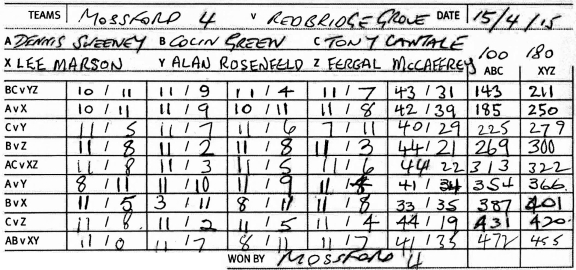 TEAMS MOSSFORD 4 V REDBRIDGE GROVE DATE 15/4/15
A DENNIS SWEENEY B COLIN GREEN C TONY CANTALE 100 180
X LEE MARSON Y ALAN ROSENFELD Z FERGAL McCAFFERY ABC XYZ
BCvYZ 10 / 11 11 / 9 11 / 4 11 / 7 43 / 31 143 211
AvX 10 / 11 11 / 9 10 / 11 11 / 8 42 / 39 185 250
CvY 11 / 5 11 / 7 11 / 6 7 / 11 40 / 29 225 279
BvZ 11 / 8 11 / 2 11 / 8 11 / 3 44 / 21 269 300
ACvXZ 11 / 8 11 / 3 11 / 5 11 / 6 44 22 313 322
AvY 8 / 11 11 / 10 11 / 9 11 / 4 41 / 34 354 366
BvX 11 / 5 3 / 11 8 / 11 11 / 8 33 / 35 387 401
CvZ 11 / 8 11 / 2 11 / 5 11 / 4 44 / 19 431 420
ABvXY 11 / 0 11 / 7 8 / 11 11 / 7 41 / 35 472 455
WON BY MOSSFORD 4